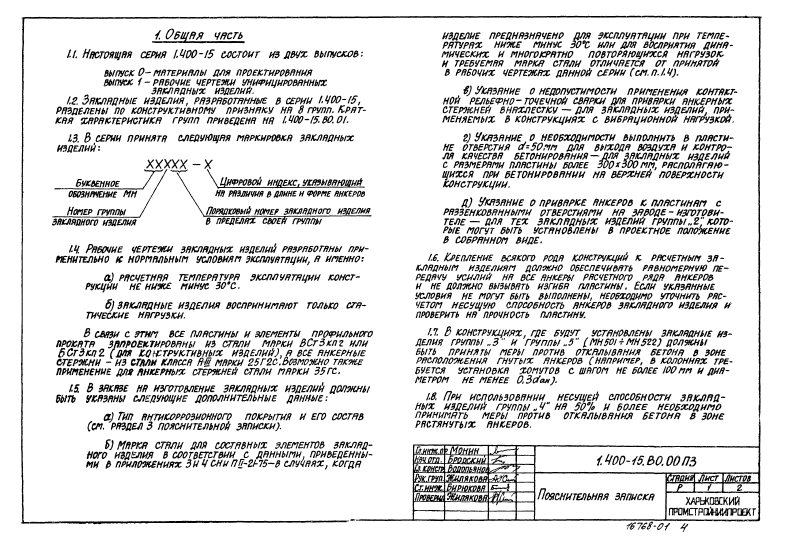 1. Общая часть
1.1. Настоящая серия 1.400-15 состоит из двух выпусков:
выпуск 0 – материалы для проектирования
выпуск 1 – рабочие чертежи унифицированных
закладных изделий.
1.2. Закладные изделия, разработанные в серии 1.400-15,
разделены по конструктивному признаку на 8 групп. Крат-
кая характеристика групп приведена на 1.400-15.В0.01.
1.3. В серии принята следующая маркировка закладных
изделий:
XXXXX – X
Буквенное
обозначение МН
Цифровой индекс, указывающий
на различия в длине и форме анкеров
Номер группы
закладного изделия
Порядковый номер закладного изделия
в пределах своей группы
1.4. Рабочие чертежи закладных изделий разработаны при-
менительно к нормальным условиям эксплуатации, а именно:
а) расчетная температура эксплуатации конст-
рукции не ниже минус 30°С.
б) закладные изделия воспринимают только ста-
тические нагрузки.
В связи с этим все пластины и элементы профильного
проката запроектированы из стали марки ВСт3кп2 или
БСт3кп2 (для конструктивных изделий), а все анкерные
стержни – из стали класса АIII марки 25Г2С. Возможно также
применение для анкерных стержней стали марки 35ГС.
1.5. В заказе на изготовление закладных изделий должны
быть указаны следующие дополнительные данные:
а) Тип антикоррозионного покрытия и его состав
(см. раздел 3 пояснительной записки).
б) Марка стали для составных элементов заклад-
ного изделия в соответствии с данными, приведенны-
ми в приложениях 3 и 4 СНиП II-21-75 – в случаях, когда
изделие предназначено для эксплуатации при темпе-
ратурах ниже минус 30°С или для восприятия дина-
мических и многократно повторяющихся нагрузок
и требуемая марка стали отличается от принятой
в рабочих чертежах данной серии (см. п. 1.4).
в) Указание о недопустимости применения контакт-
ной рельефно-точечной сварки для приварки анкерных
стержней внахлестку – для закладных изделий, при-
меняемых в конструкциях с вибрационной нагрузкой.
г) Указание о необходимости выполнить в пласти-
не отверстия d=50мм для выхода воздуха и контро-
ля качества бетонирования – для закладных изделий
с размерами пластины более 300×300 мм, располагаю-
щихся при бетонировании на верхней поверхности
конструкции.
д) Указание о приварке анкеров к пластинам с
раззенкованными отверстиями на заводе-изготови-
теле – для тех закладных изделий группы „2", кото-
рые могут быть установлены в проектное положение
в собранном виде.
1.6. Крепление всякого рода конструкций к расчетным за-
кладным изделиям должно обеспечивать равномерную пе-
редачу усилий на все анкеры расчетного ряда анкеров
и не должно вызывать изгиба пластины. Если указанные
условия не могут быть выполнены, необходимо уточнить рас-
четом несущую способность анкеров закладного изделия и
проверить на прочность пластину.
1.7. В конструкциях, где будут установлены закладные из-
делия группы „3" и группы „5" (МН501÷МН522) должны
быть приняты меры против откалывания бетона в зоне
расположения гнутых анкеров (например, в колоннах тре-
буется установка хомутов с шагом не более 100мм и диа-
метром не менее 0,3dан).
1.8. При использовании несущей способности заклад-
ных изделий группы „4" на 50% и более необходимо
принимать меры против откалывания бетона в зоне
растянутых анкеров.
Гл.инж.пр Монин
Нач.отд. Бродский
Гл.констр. Водопьянов
Рук.груп. Жилякова
Ст.инж. Бирюкова
Проверил Жилякова
1.400-15.В0.00ПЗ
Пояснительная записка
Стадия Лист Листов
Р 1 2
Харьковский
Промстройниипроект
16768-01 4